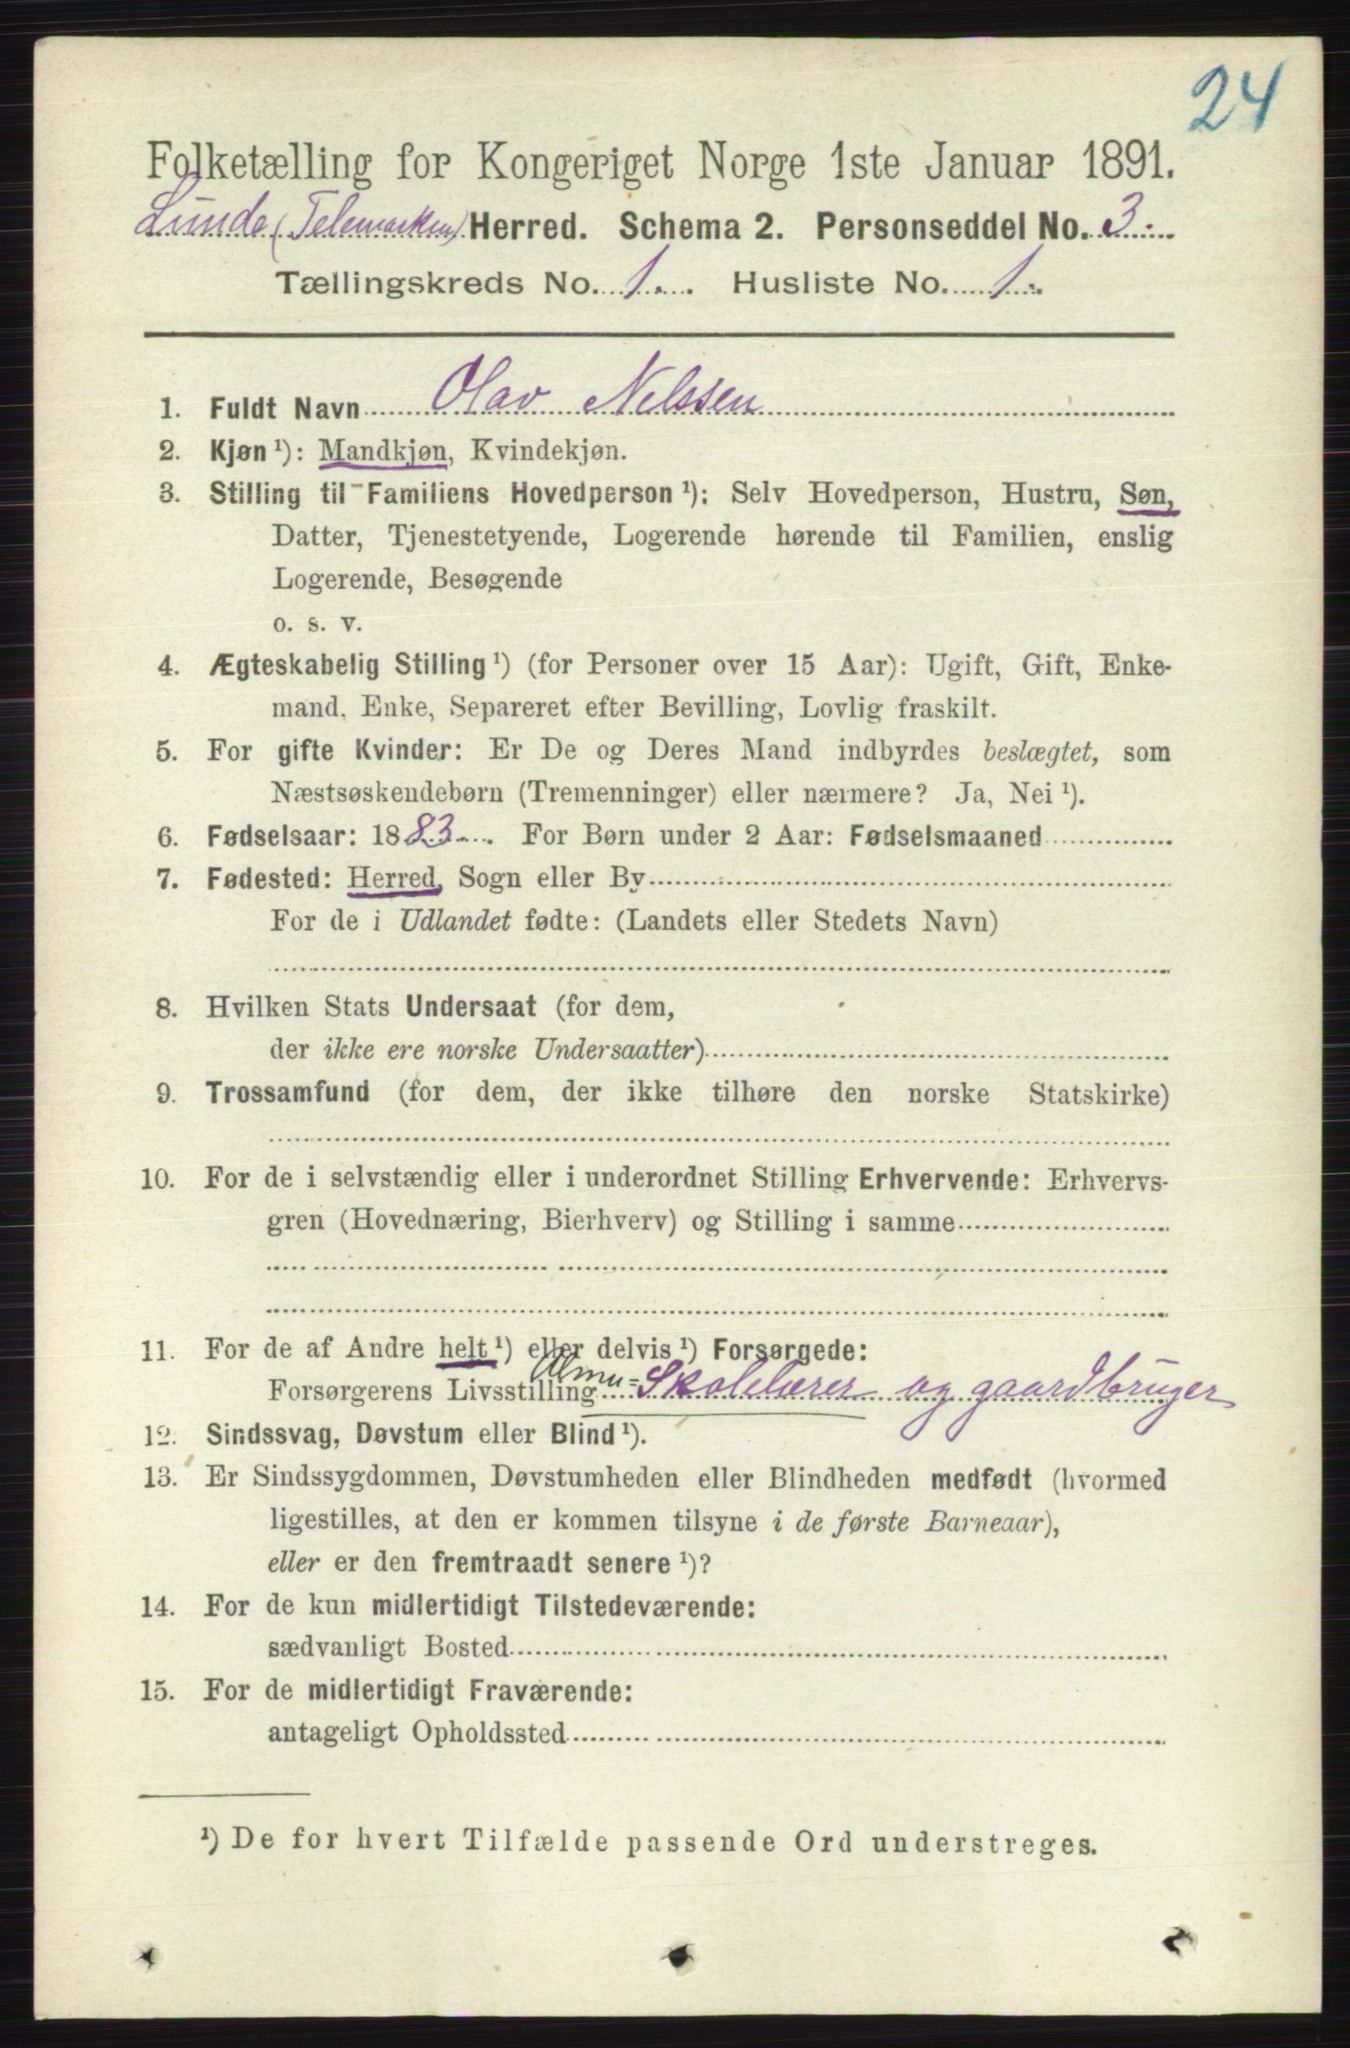 24
Folketælling for Kongeriget Norge 1ste Januar 1891.
Lunde (Telemarken) Herred. Schema 2. Personseddel No. 3.
Tællingskreds No. 1. Husliste No. 1.
1. Fuldt Navn Olav Nelssen
2. Kjøn¹): Mandkjøn, Kvindekjøn.
3. Stilling til Familiens Hovedperson¹): Selv Hovedperson, Hustru, Søn,
Datter, Tjenestetyende, Logerende hørende til Familien, enslig
Logerende, Besøgende
o. s. v.
4. Ægteskabelig Stilling¹) (for Personer over 15 Aar): Ugift, Gift, Enke-
mand, Enke, Separeret efter Bevilling, Lovlig fraskilt.
5. For gifte Kvinder: Er De og Deres Mand indbyrdes beslægtet, som
Næstsøskendebørn (Tremenninger) eller nærmere? Ja, Nei¹).
6. Fødselsaar: 1883. For Børn under 2 Aar: Fødselsmaaned
7. Fødested: Herred, Sogn eller By
For de i Udlandet fødte: (Landets eller Stedets Navn)
8. Hvilken Stats Undersaat (for dem,
der ikke ere norske Undersaatter)
9. Trossamfund (for dem, der ikke tilhøre den norske Statskirke)
10. For de i selvstændig eller i underordnet Stilling Erhvervende: Erhvervs-
gren (Hovednæring, Bierhverv) og Stilling i samme
11. For de af Andre helt¹) eller delvis¹) Forsørgede:
Forsørgerens Livsstilling Almu= Skolelærer og gaardbruger
12. Sindssvag, Døvstum eller Blind¹).
13. Er Sindssygdommen, Døvstumheden eller Blindheden medfødt (hvormed
ligestilles, at den er kommen tilsyne i de første Barneaar),
eller er den fremtraadt senere¹)?
14. For de kun midlertidigt Tilstedeværende:
sædvanligt Bosted
15. For de midlertidigt Fraværende:
antageligt Opholdssted
¹) De for hvert Tilfælde passende Ord understreges.